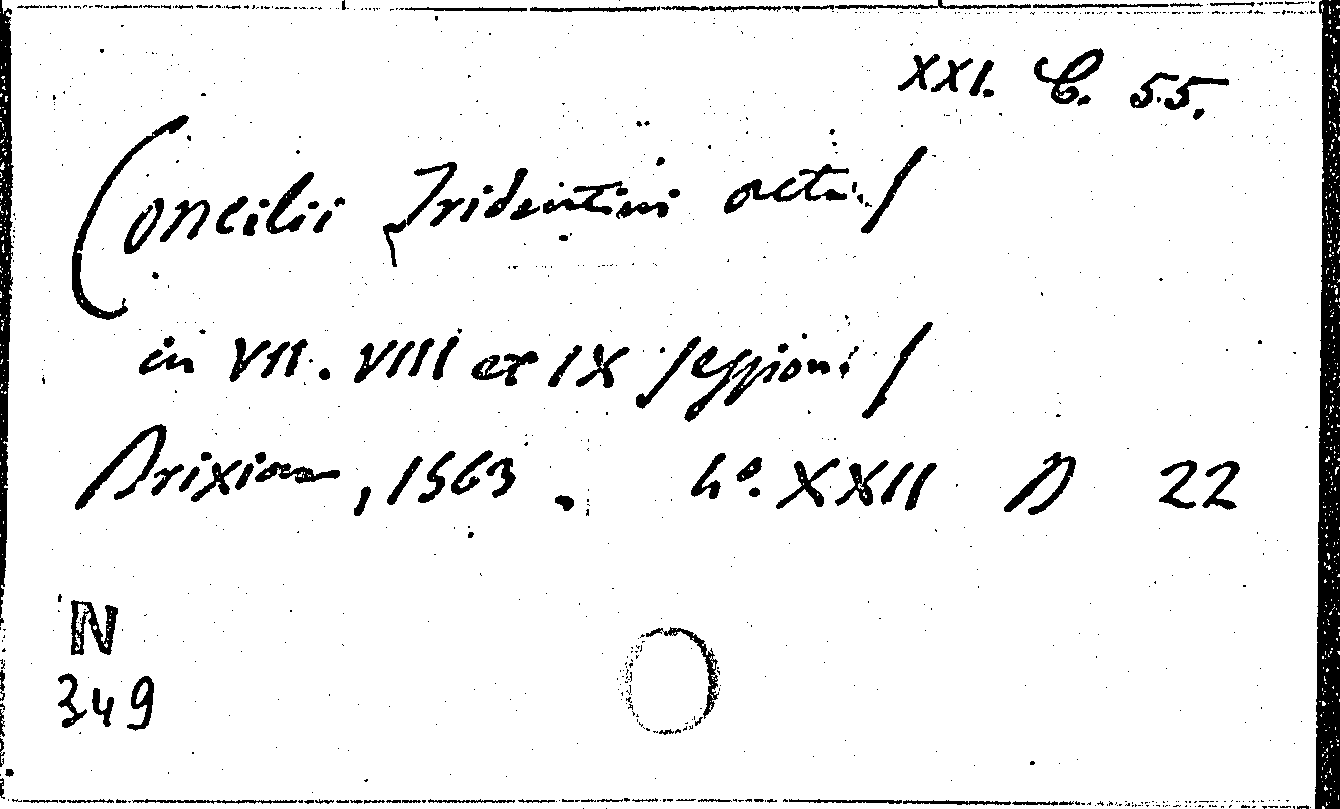 XXI. C. 55.
Concilii Tridentini acta /
in VII. VIII et IX sessioni /
Brixiae, 1563. 4º. XXII D 22
N
349